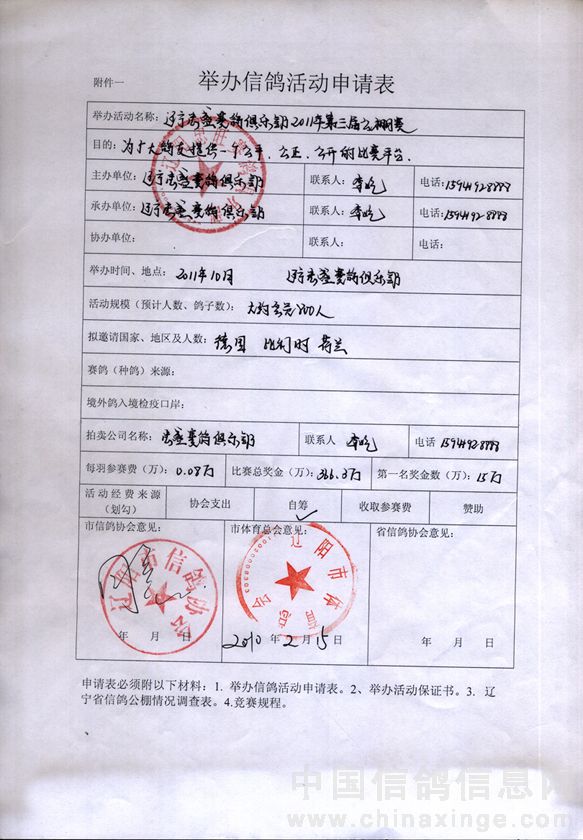 附件一
举办信鸽活动申请表
举办活动名称：辽宁宏盛赛鸽俱乐部2011年第三届公棚赛
目的：为广大鸽友提供一个公平、公正、公开的比赛平台.
主办单位：辽宁宏盛赛鸽俱乐部 联系人： 电话：
承办单位：辽宁宏盛赛鸽俱乐部 联系人： 电话：
协办单位： 联系人： 电话：
举办时间、地点： 2011年10月 辽宁宏盛赛鸽俱乐部
活动规模（预计人数、鸽子数）：
拟邀请国家、地区及人数： 德国 比利时 荷兰
赛鸽（种鸽）来源：
境外鸽入境检疫口岸：
拍卖公司名称：宏盛赛鸽俱乐部 联系人 电话
每羽参赛费（万）：0.08万 比赛总奖金（万）：366.3万 第一名奖金数（万）：15万
活动经费来源（划勾） 协会支出 自筹 ✓ 收取参赛费 赞助
市信鸽协会意见： 市体育总会意见： 省信鸽协会意见：
辽阳市信鸽协会
辽阳市体育总会
年 月 日 2010年2月15日 年 月 日
申请表必须附以下材料：1. 举办信鸽活动申请表。2、举办活动保证书。3．辽
宁省信鸽公棚情况调查表。4.竞赛规程。
中国信鸽信息网
www.chinaxinge.com